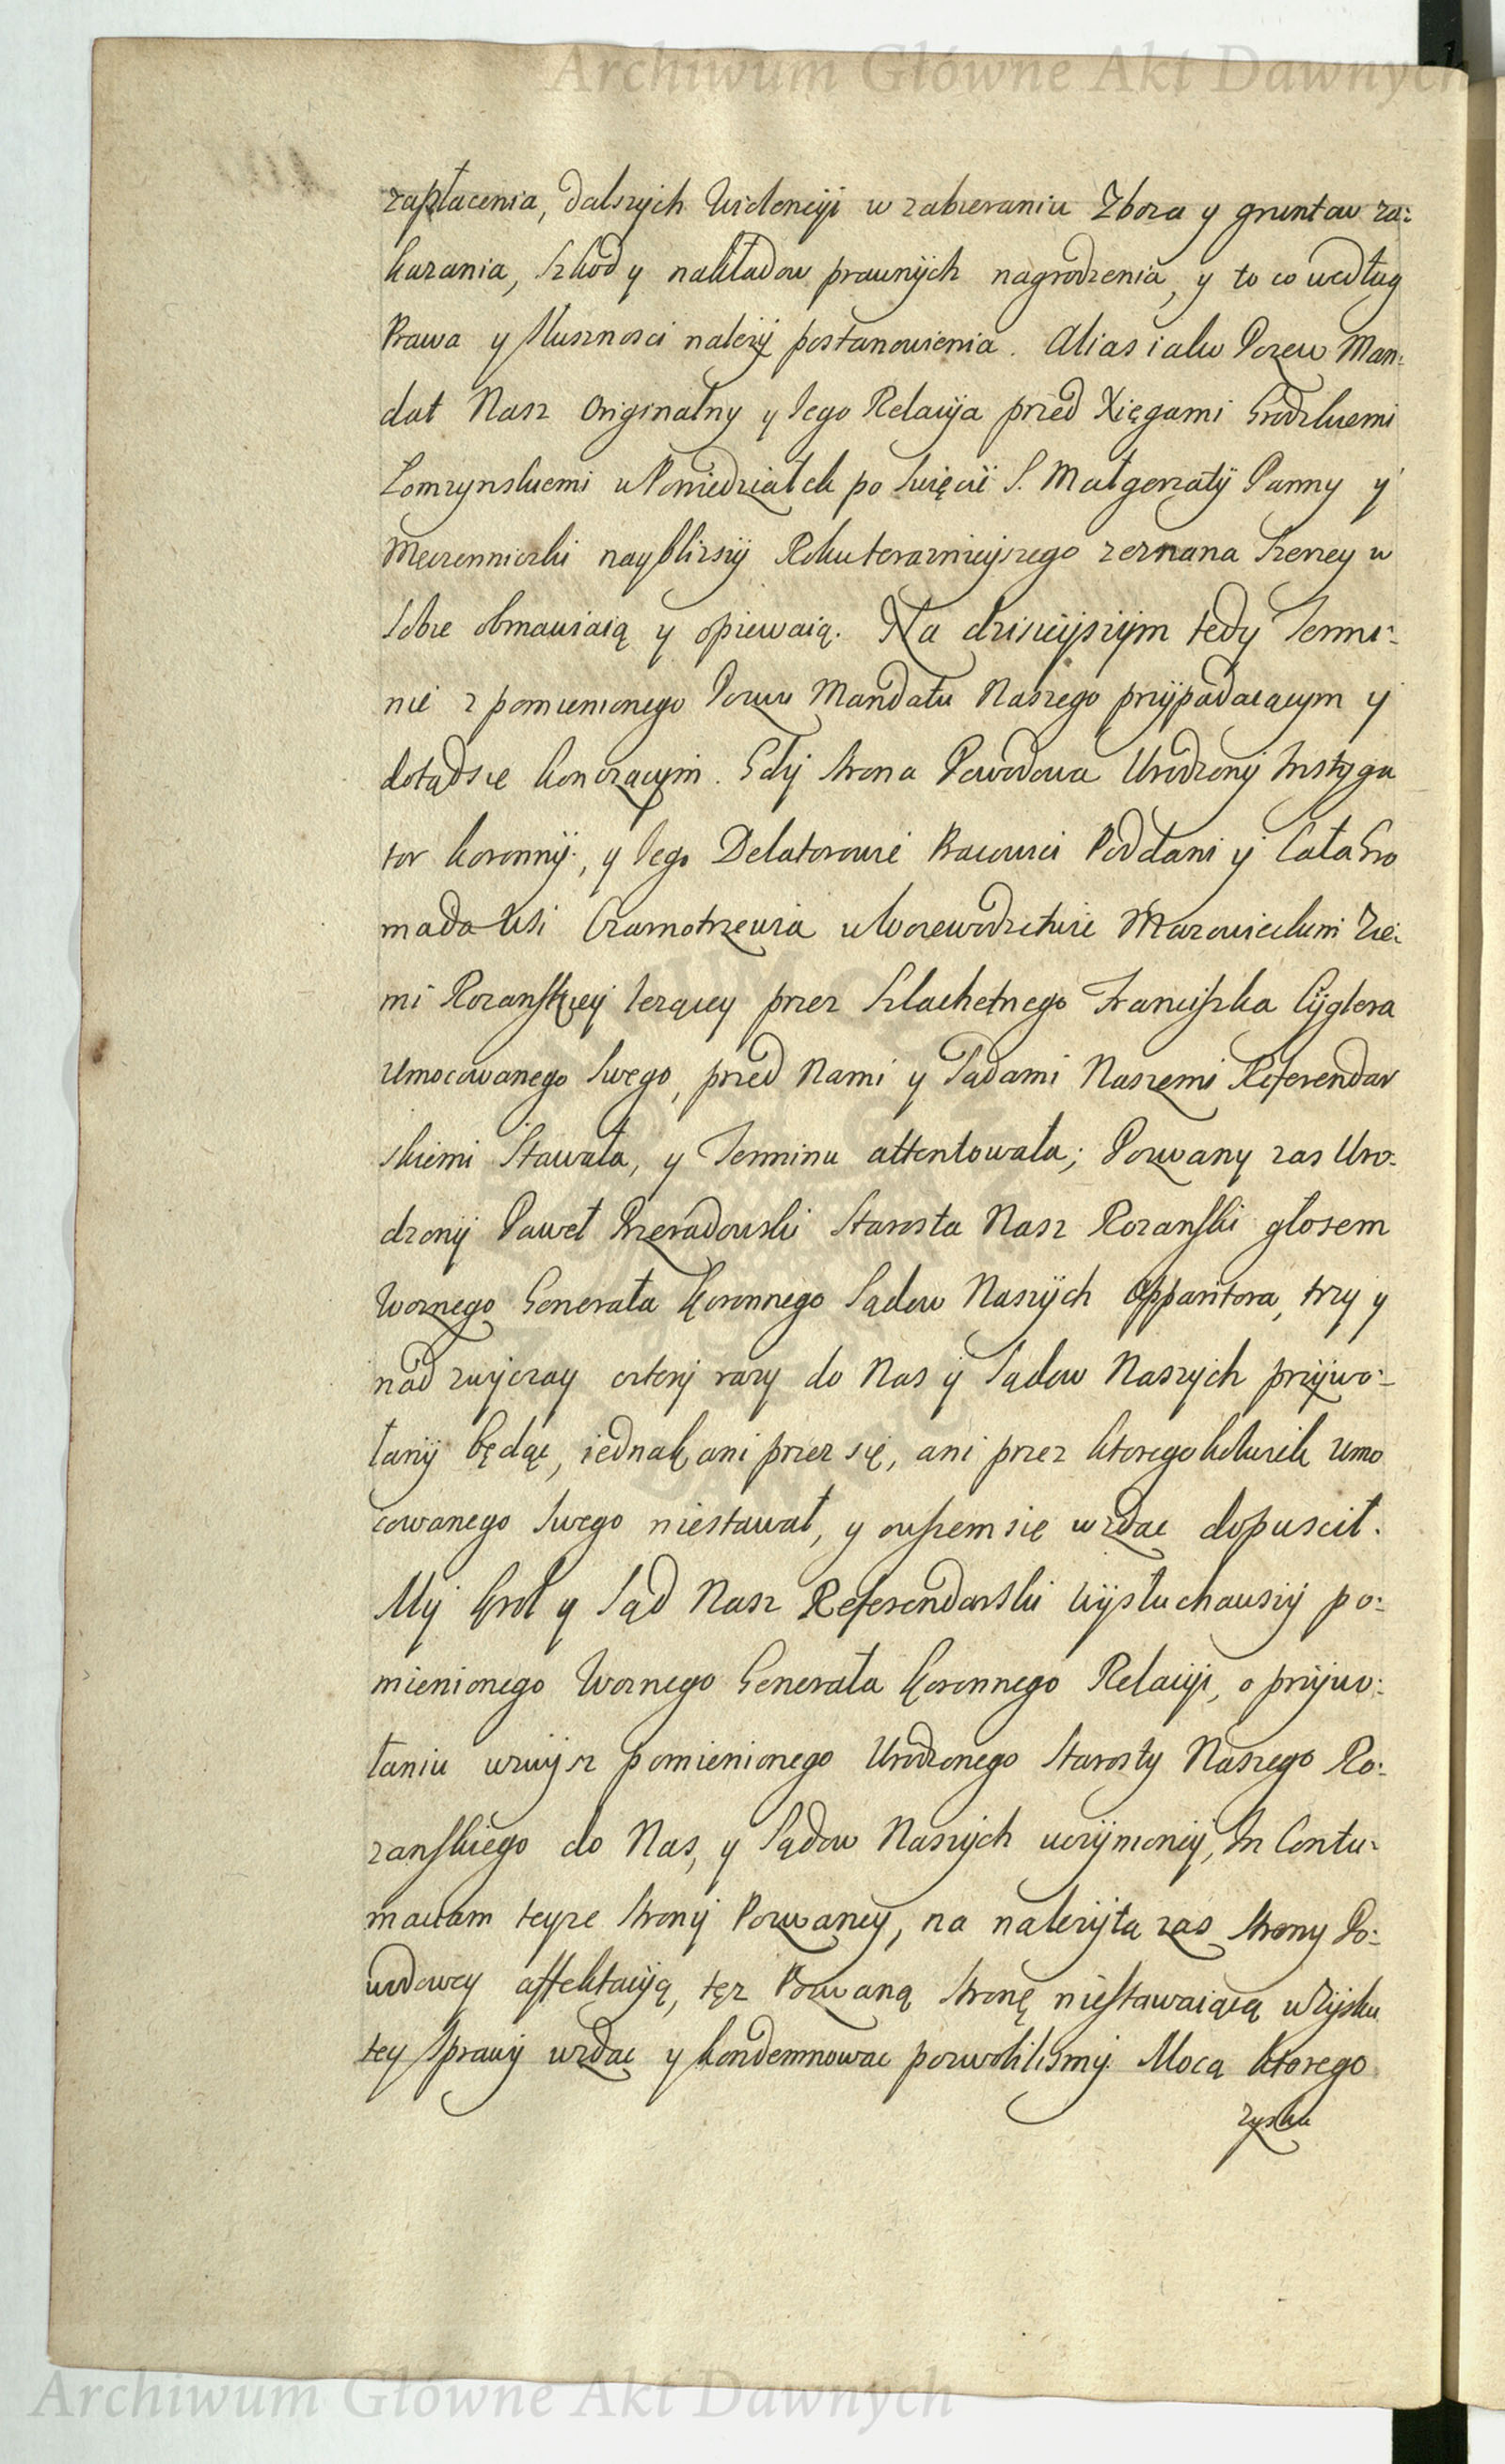 Archiwum Główne Akt Dawnych
zapłacenia, dalszych Wiolencyi w zabieraniu Zboza y gruntow za:
kazania, szkod y nakładow prawnych nagrodzenia, y to co według
Prawa y słusznosci nalezy postanowienia. Alias iako Pozew Man:
dat Nasz Originalny y Jego Relacyja przed Xięgami Grodzkiemi
Łomzynskiemi w Poniedziałek po swięcie S. Małgorzaty Panny y
Męczenniczki nayblizszy Roku teraznieyszego zeznana szerzey w
sobie obmawiaią y opiewaią. Na dzisieyszym tedy Termi:
nie z pomienionego Pozwu Mandatu Naszego przypadaiącym y
dotądsie konczącym. Gdy strona Powodowa Urodzony Instyga
tor koronny, y Jego Delatorowie Pracowici Poddani y Cała Gro
mada Wsi Czarnotrzewia w Woiewodztwie Mazowieckim Zie:
mi Rozanskiey lezącey przez Szlachetnego Franciszka Cyglera
Umocowanego swego, przed Nami y Sądami Naszemi Referendar
skiemi stawała, y Terminu attentowała; Pozwany zas Uro:
dzony Paweł Przeradowski Starosta Nasz Rozanski głosem
Woznego Generała koronnego Sądow Naszych Apparitora, trzy y
nad zwyczay cztery razy do Nas y Sądow Naszych przywo:
łany będąc, iednak ani przez się, ani przez ktoregokolwiek Umo
cowanego swego niestawał, y owszem się wzdac dopuscił.
My Krol y Sąd Nasz Referendarski wysłuchawszy po:
mienionego Woznego Generała koronnego Relacyi, o przywo:
łaniu wzwysz pomienionego Urodzonego Starosty Naszego Ro:
zanskiego do Nas, y Sądow Naszych uczynioney, In Contu:
maciam teyze strony Pozwaney, na nalezytą zas strony Po:
wodowey affektacyją, tęz Pozwaną stronę niestawaiącą w Zysku
tey sprawy wzdac y kondemnowac pozwolilismy. Mocą ktorego
zysku
Archiwum Główne Akt Dawnych